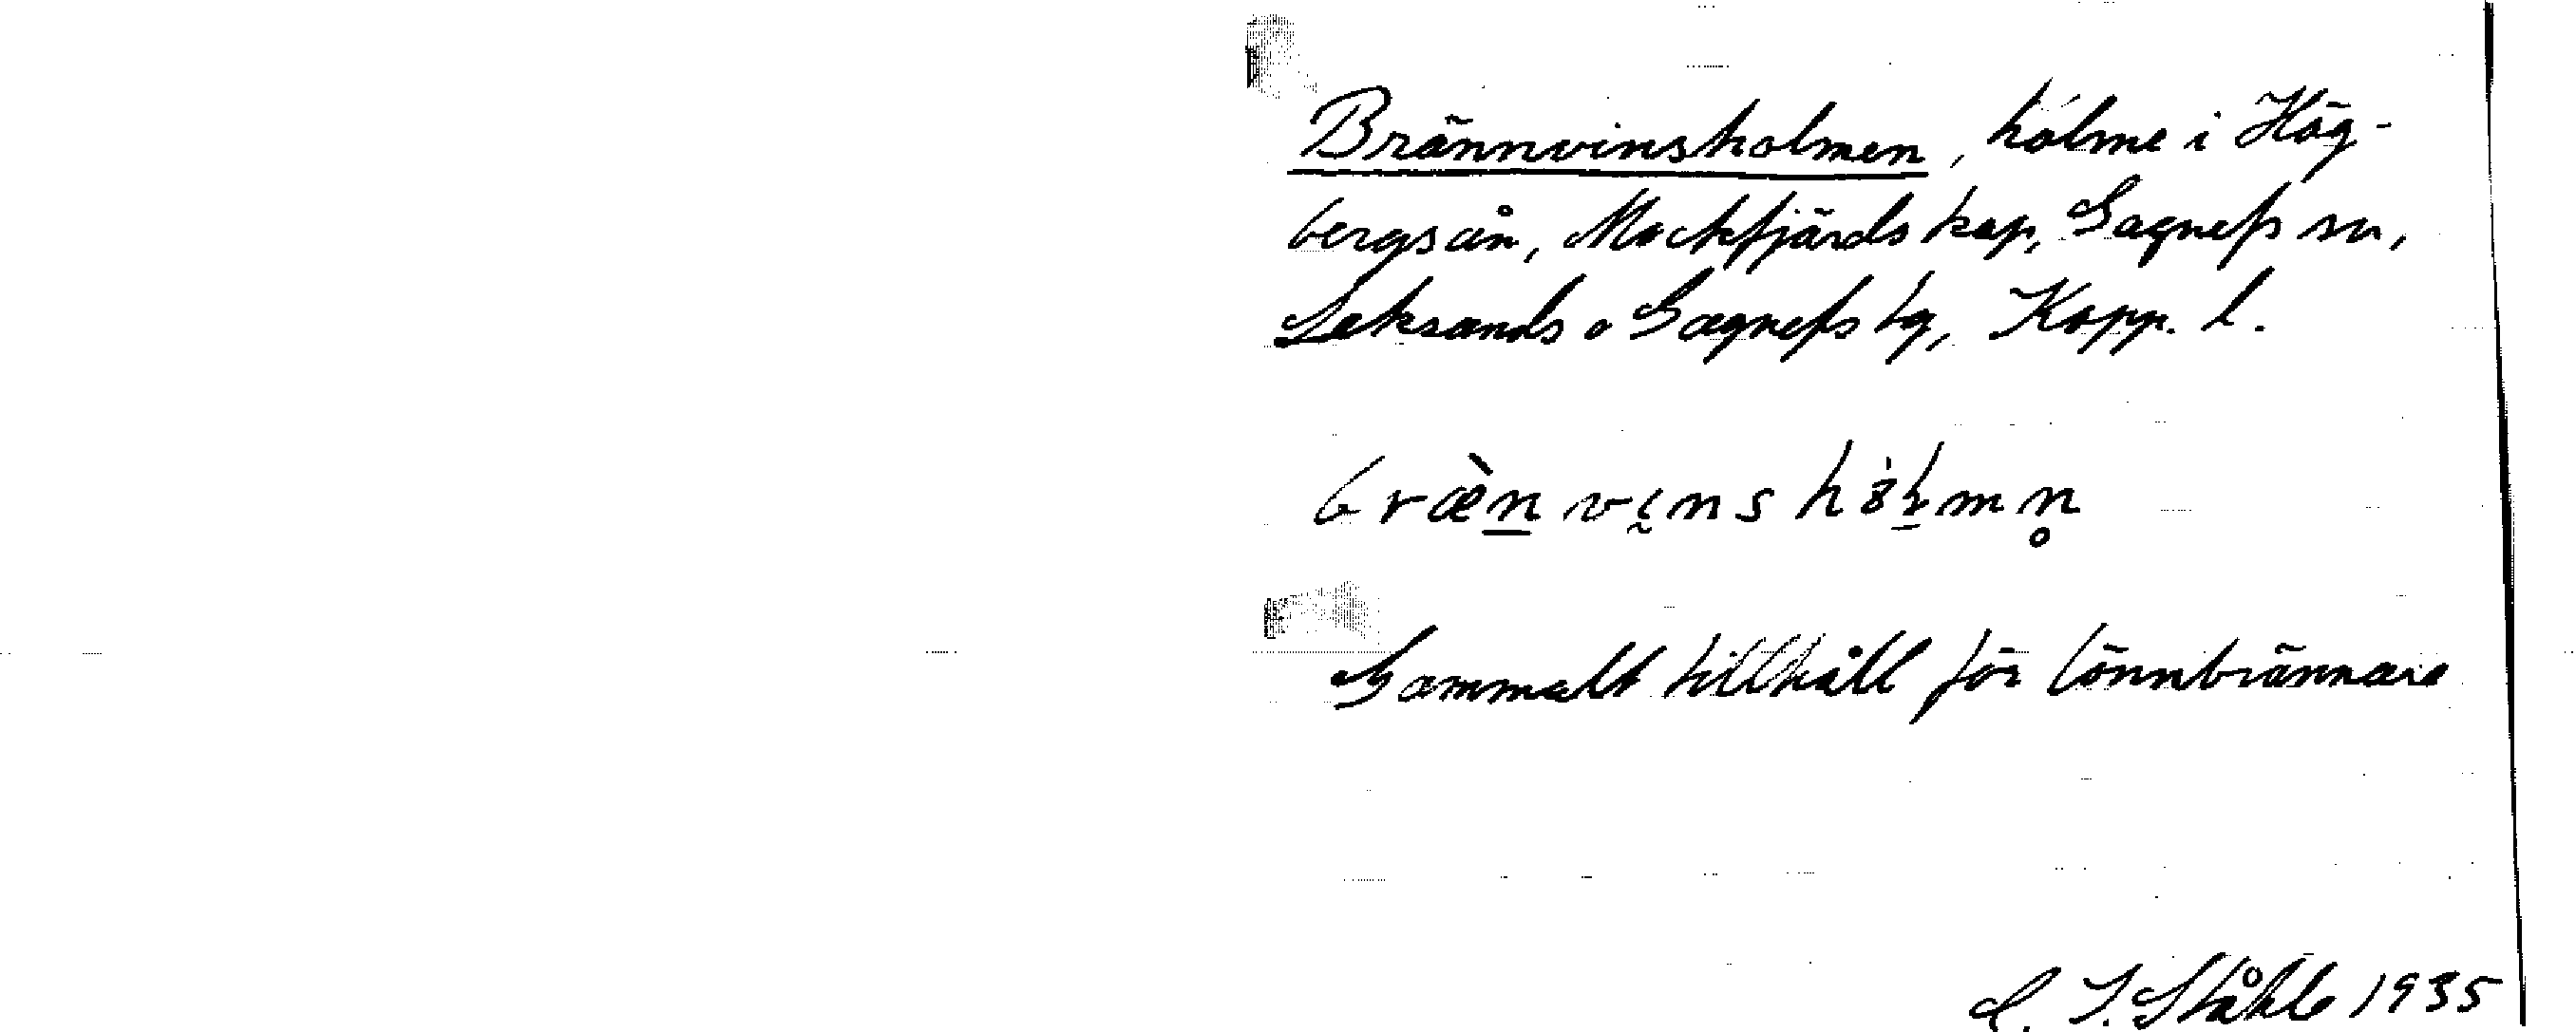 Brännvinsholmen, holme i Hög-
bergsån, Mockfjärds kap, Gagnefs sn,
Leksands o Gagnefs tg, Kopp. l.
Gammalt tillhåll för lönnbrännare
C. I. Ståhle 1935